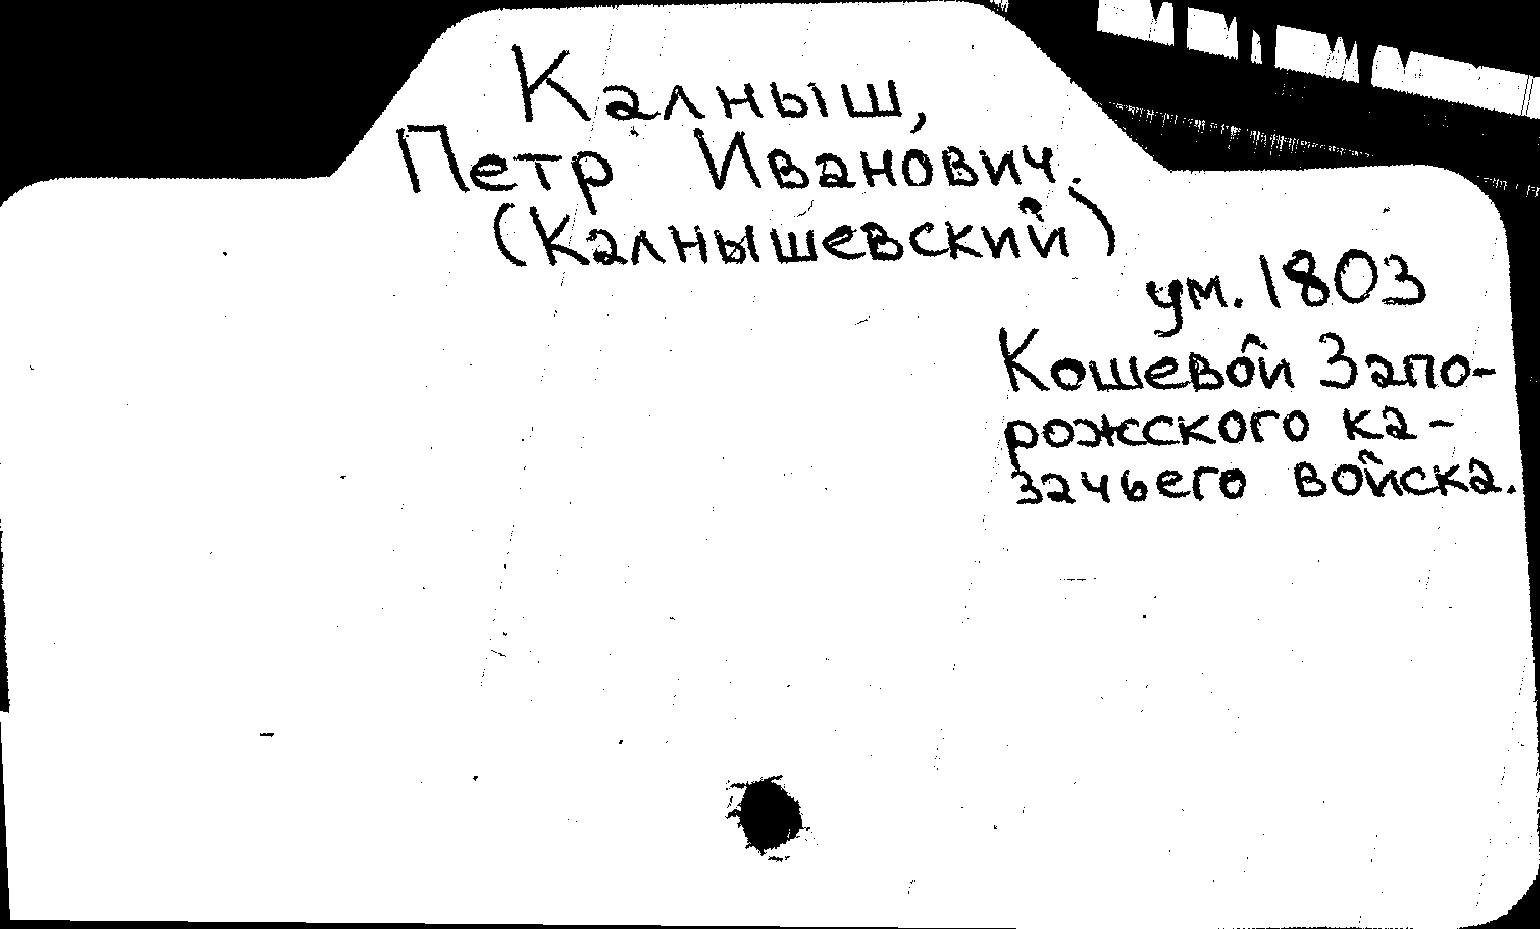 Калныш,
Петр Иванович.
(Калнышевский)
ум. 1803
Кошевой Запо-
рожского ка-
зачьего войска.